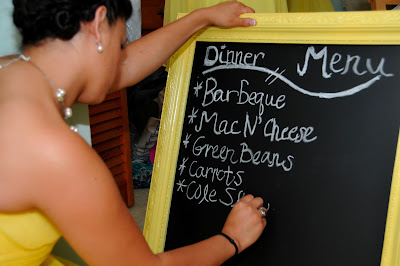 Dinner Menu
*Barbeque
*Mac N' Cheese
*Green Beans
*Carrots
*Cole